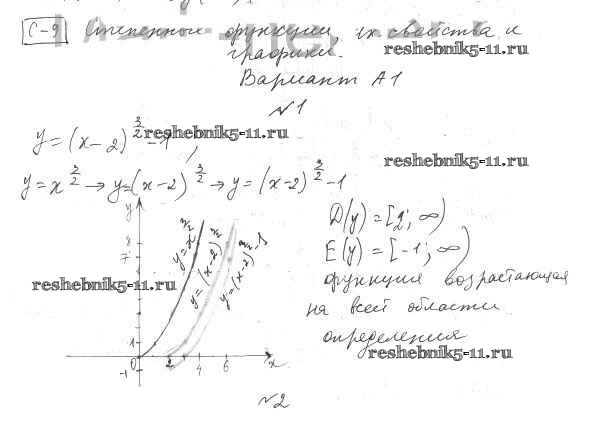 С-9 Степенные функции, их свойства и
графики.
reshebnik5-11.ru
Вариант А1
№1
y = (x-2)^{3/2} - 1,
reshebnik5-11.ru
reshebnik5-11.ru
y = x^{3/2} → y = (x-2)^{3/2} → y = (x-2)^{3/2} - 1
D(y) = [2; ∞)
E(y) = [-1; ∞)
функция возрастающая
на всей области
определения
reshebnik5-11.ru
reshebnik5-11.ru
y
8
7
y = x^{3/2}
y = (x-2)^{3/2}
y = (x-2)^{3/2} - 1
1
0
-1
2
4
6
x
№2